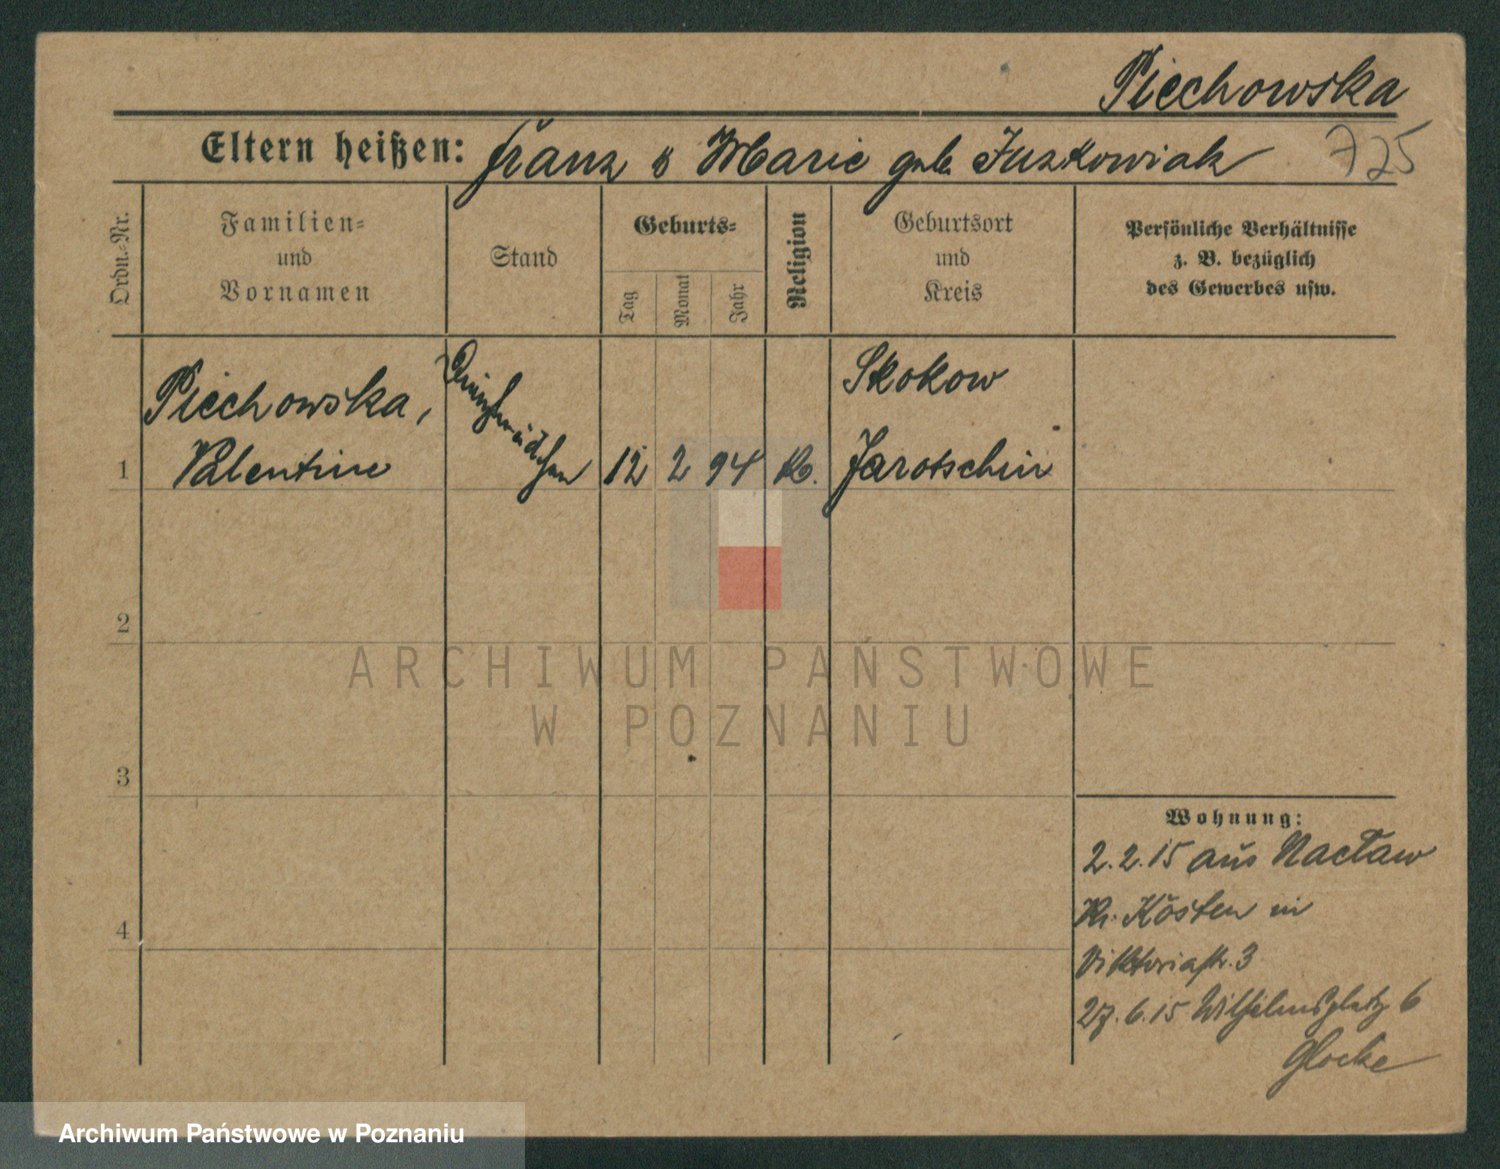 Piechowska
Eltern heißen: Franz & Marie geb. Juszkowiak
725
Ordn.-Nr.
Familien-
und
Vornamen
Stand
Geburts-
Tag
Monat
Jahr
Religion
Geburtsort
und
Kreis
Persönliche Verhältnisse
z. B. bezüglich
des Gewerbes usw.
1
Piechowska,
Valentine
Dienstmädchen
12 2 94 K.
Skokow
Jarotschin
2
3
4
Wohnung:
2.2.15 aus Nacław
Kr. Kosten in
Viktoriastr. 3
27.6.15 Wilhelmsplatz 6
Glocke
ARCHIWUM PAŃSTWOWE
W POZNANIU
Archiwum Państwowe w Poznaniu